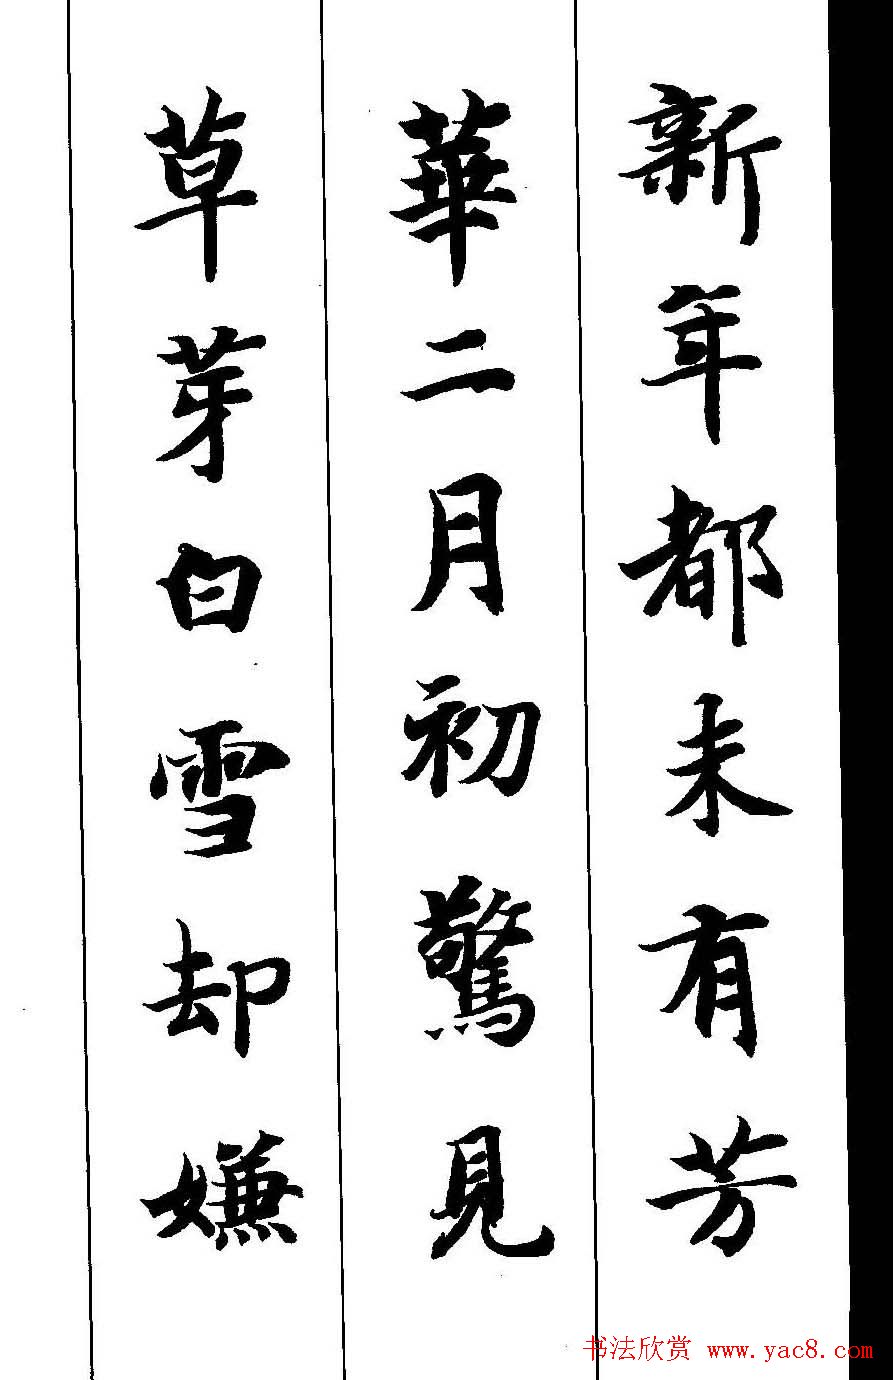 新年都未有芳
華二月初驚見
草芽白雪却嫌
书法欣赏 www.yac8.com